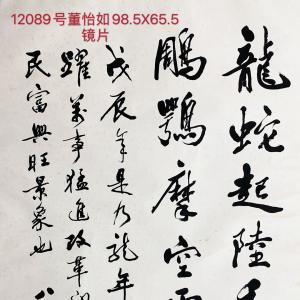 12089号董怡如98.5X65.5
镜片
龍蛇起陸
鵰鶚摩空
戊辰年是乃龍年
躍萬事猛進改革
民富興旺景象也
八